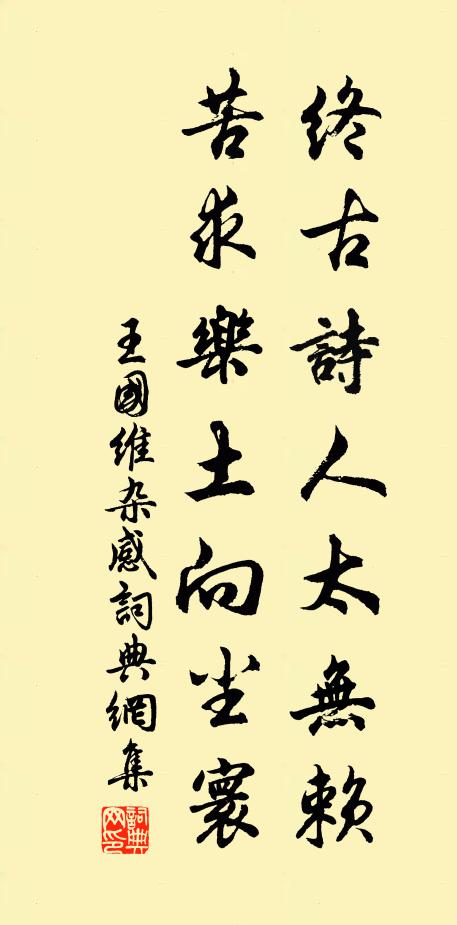 終古詩人太無賴
苦求樂土向尘寰
王國維杂感詞典網集
詞典网印